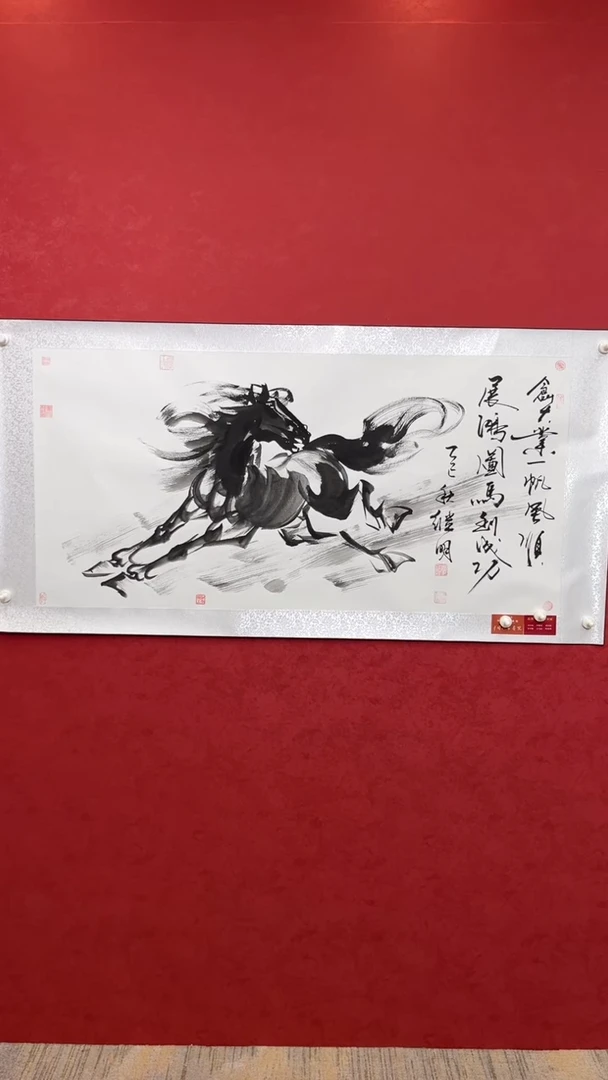 創大業一帆風順
展鴻圖馬到成功
乙巳秋繼明